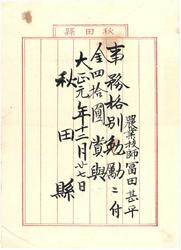 秋田縣
農業技師 冨田甚平
事務格別勉勵ニ付
金四拾圓賞與
大正元年十二月廿七日
秋田縣